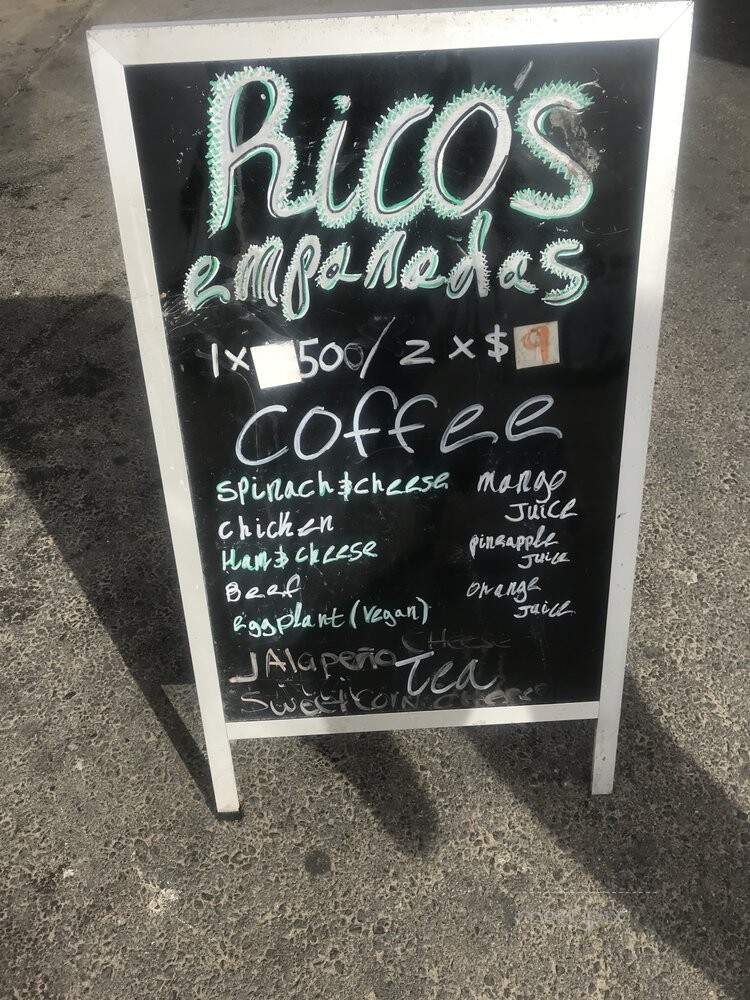 Rico's
empanadas
1x 500/2x$9
coffee
spinach & cheese
chicken
Ham & cheese
Beef
eggplant (vegan)
JAlapeño cheese
Sweet corn cheese
mango
Juice
pineapple
Juice
orange
Juice
Tea